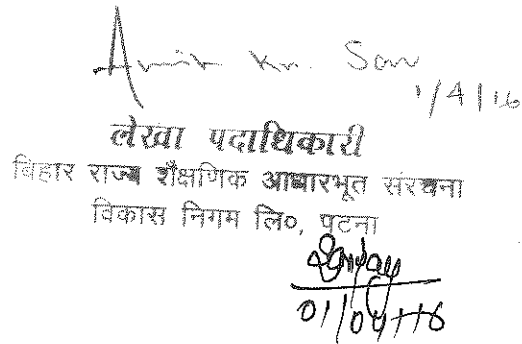 Amit Kr. Saw
1/4/16
लेखा पदाधिकारी
बिहार राज्य शैक्षणिक आधारभूत संरचना
विकास निगम लि०, पटना
01/04/16